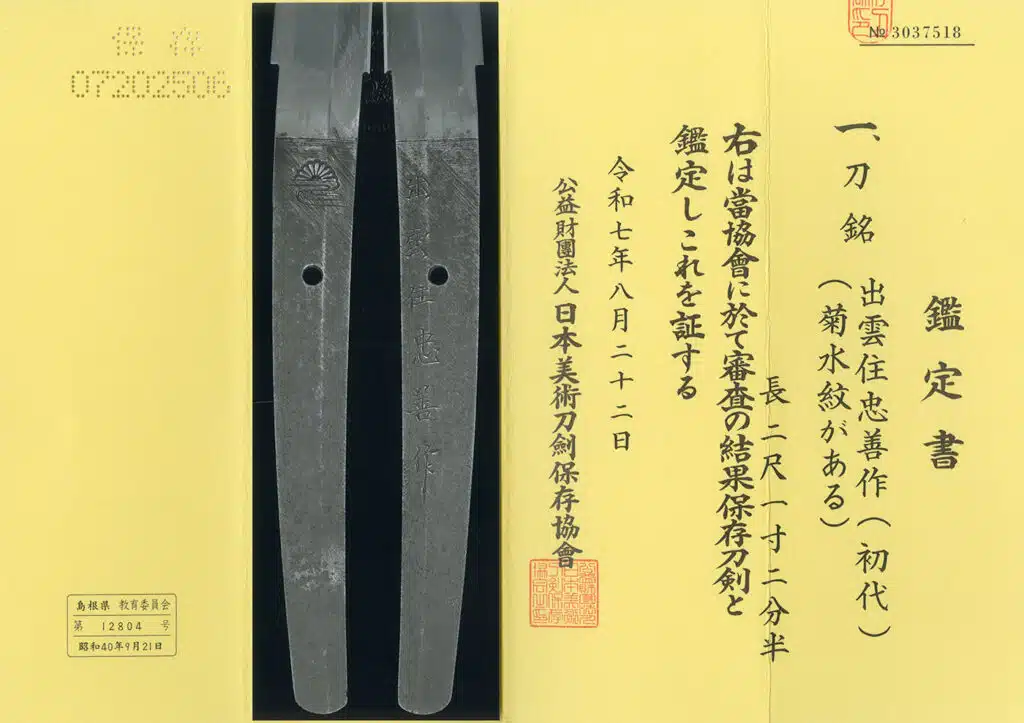 № 3037518
鑑定書
一、刀 銘 出雲住忠善作(初代)
(菊水紋がある)
長 二尺一寸二分半
右は當協會に於て審査の結果保存刀剣と
鑑定しこれを証する
令和七年八月二十二日
公益財團法人 日本美術刀劍保存協會
出雲住忠善作
保存
07202506
島根県 教育委員会
第 12804 号
昭和40年9月21日